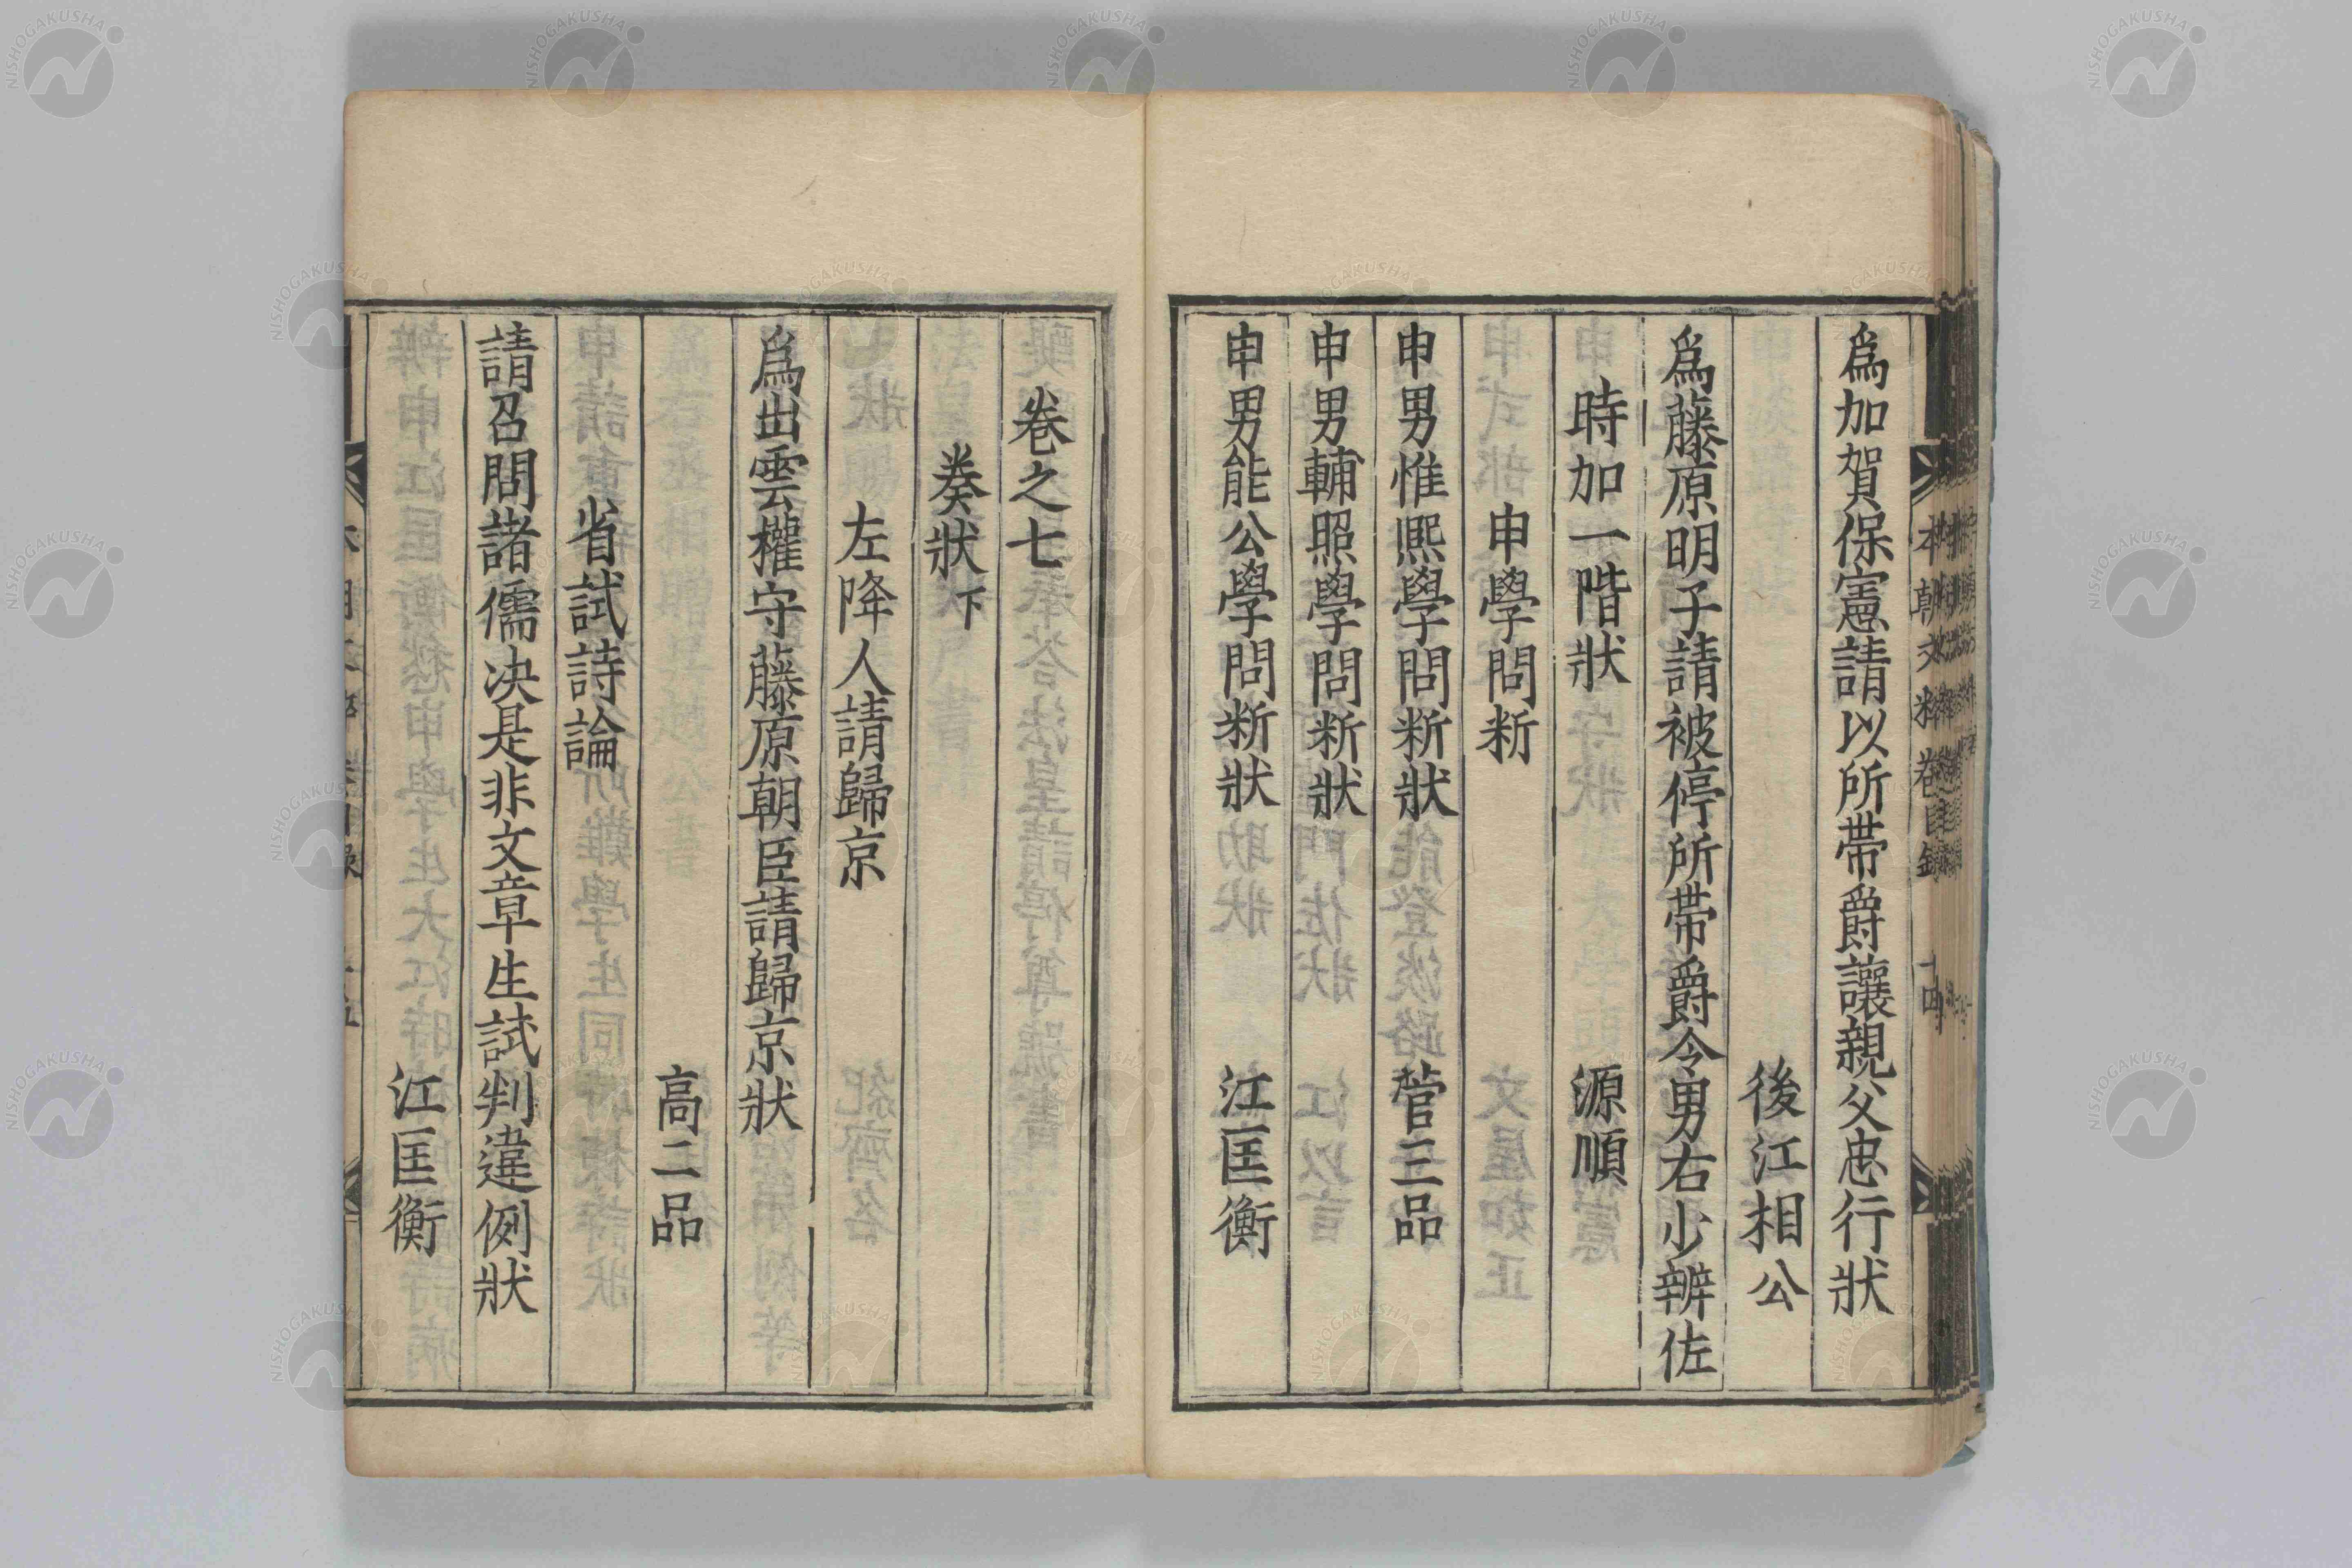 爲加賀保憲請以所帶爵讓親父忠行狀
後江相公
爲藤原明子請被停所帶爵令男右少辨佐
時加一階狀
源順
申學問新
申男惟熈學問新狀
菅三品
申男輔照學問新狀
申男能公學問新狀
江匡衡
卷之七
奏狀下
左降人請歸京
爲出雲權守藤原朝臣請歸京狀
高二品
省試詩論
請召問諸儒决是非文章生試判違例狀
江匡衡
本朝文粹卷目錄
十四
NISHOGAKUSHA